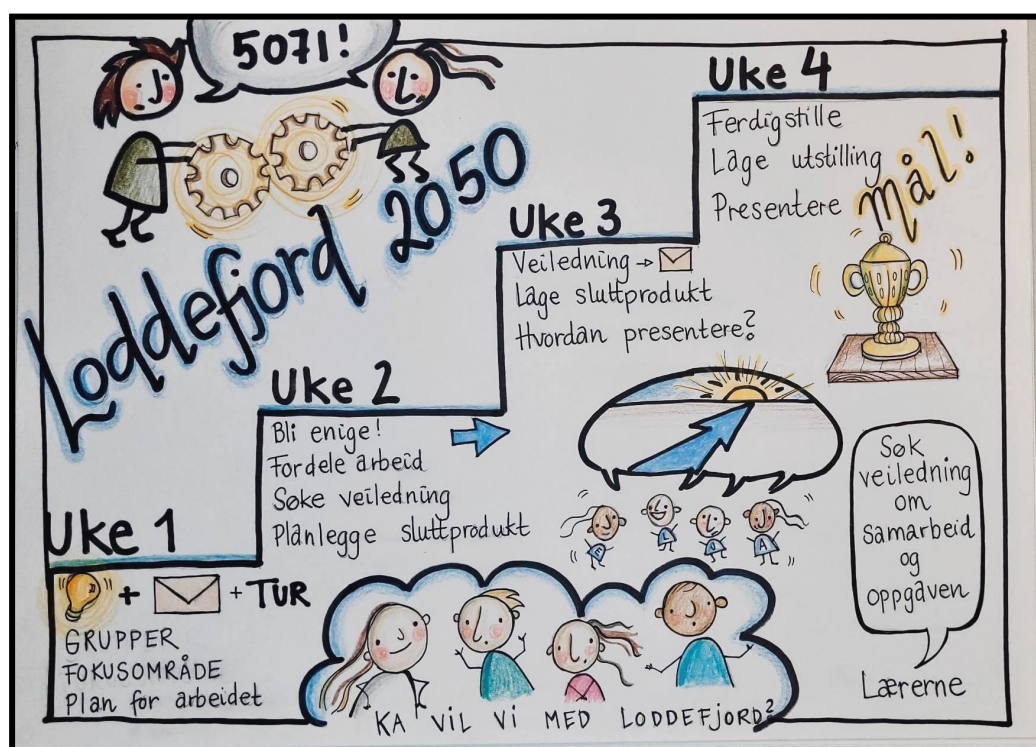 5071!
Loddefjord 2050
Uke 1
+ + TUR
GRUPPER
FOKUSOMRÅDE
Plan for arbeidet
Uke 2
Bli enige!
Fordele arbeid
Søke veiledning
Planlegge sluttprodukt
Uke 3
Veiledning →
Lage sluttprodukt
Hvordan presentere?
Uke 4
Ferdigstille
Lage utstilling
Presentere
Mål!
KA VIL VI MED LODDEFJORD?
Søk
veiledning
om
samarbeid
og
oppgaven
Lærerne